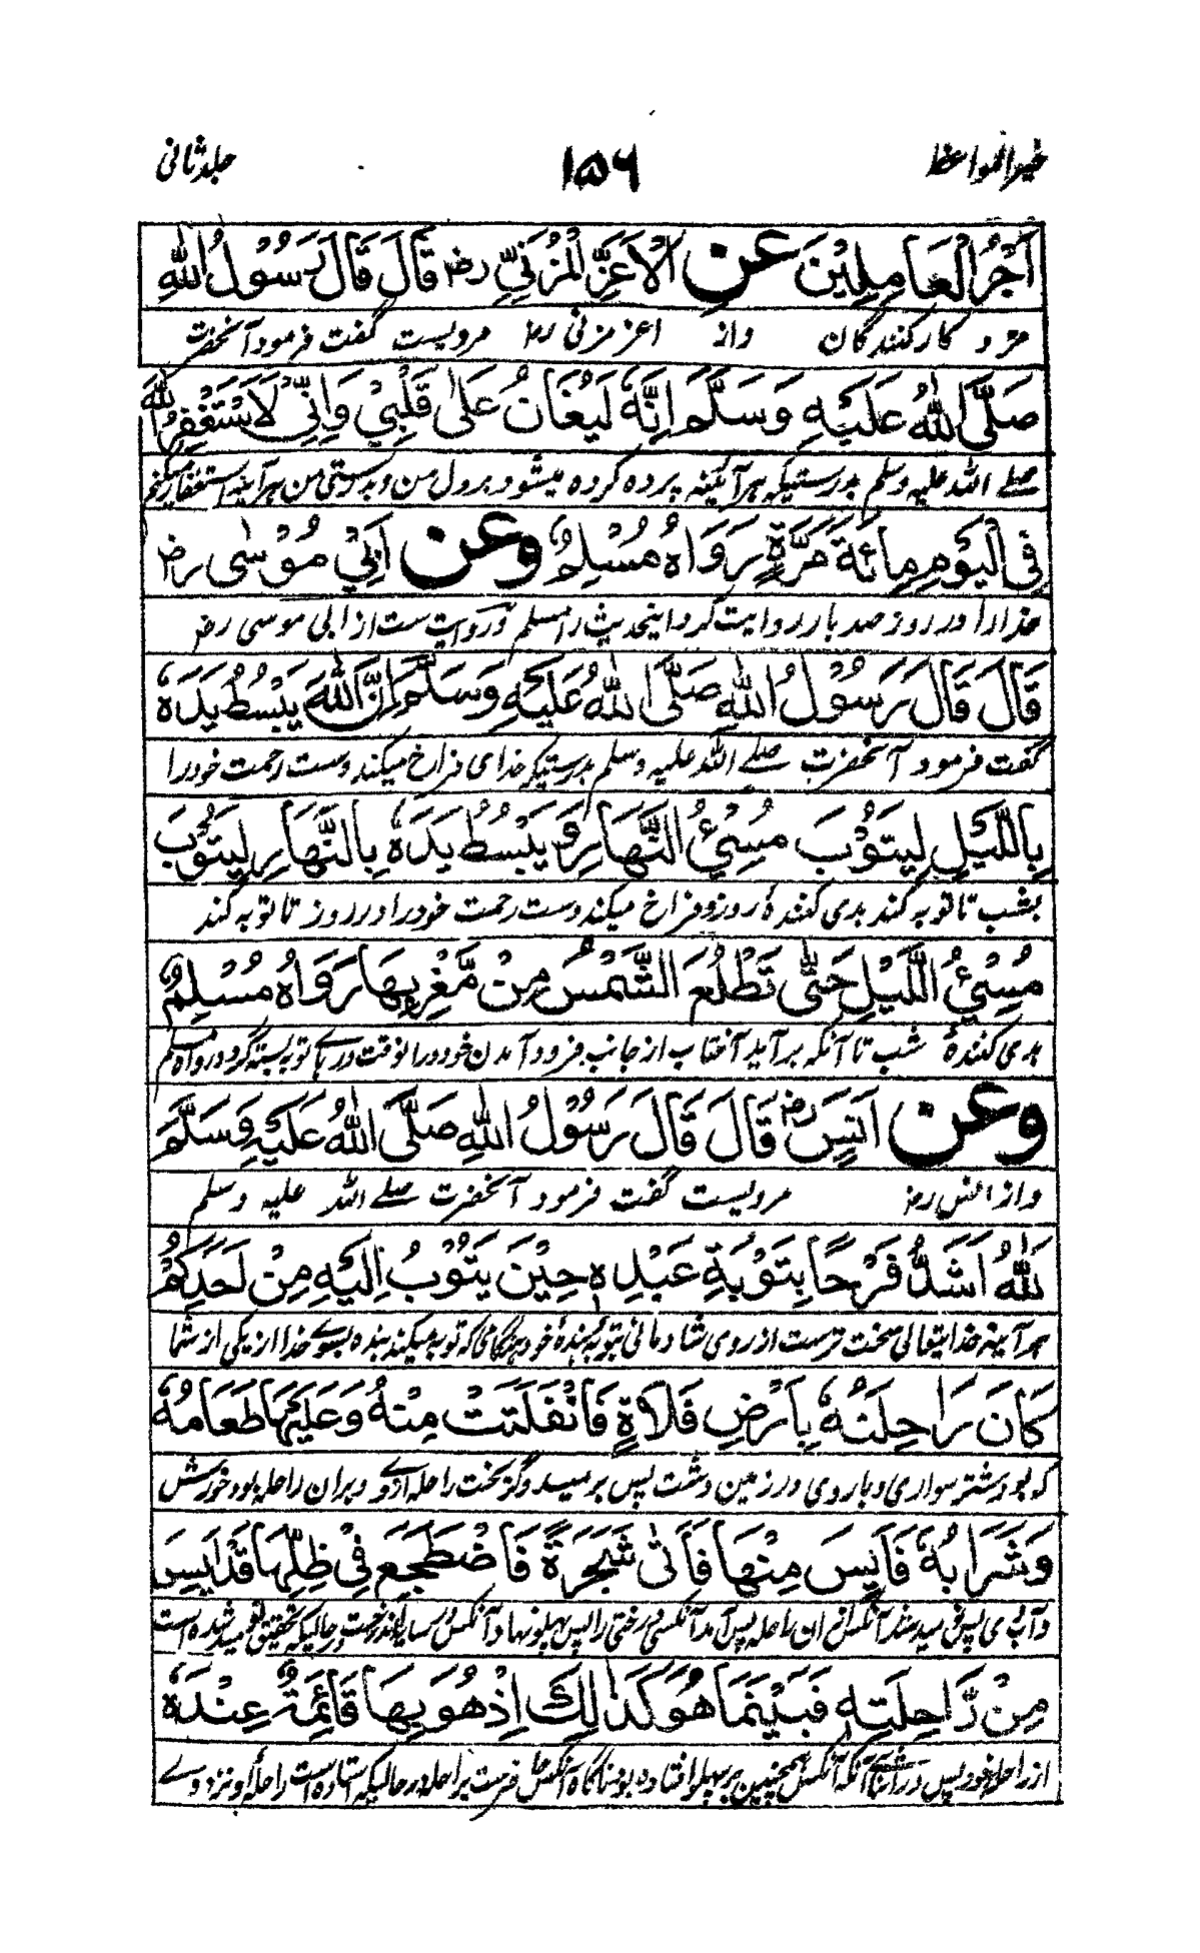 خیرالمواعظ ١٥٦ جلدثانی
اَجْرُ الْعَامِلِيْنَ عَنِ الْاَغَرِّ الْمُزَنِيِّ رض قَالَ قَالَ رَسُوْلُ اللّٰهِ
مزد کارکنندگان واز اغر مزنی رض مرویست گفت فرمود آنحضرت
صَلَّى اللّٰهُ عَلَيْهِ وَسَلَّمَ اِنَّهٗ لَيُغَانُ عَلٰى قَلْبِيْ وَاِنِّيْ لَاَسْتَغْفِرُ اللّٰهَ
صلے اللّٰہ علیہ وسلم بدرستیکہ ہرآئینہ پردہ کردہ میشود بردل من وبدرستی من ہرآئینہ استغفار میکنم
فِى الْيَوْمِ مِائَةَ مَرَّةٍ رَوَاهُ مُسْلِمٌ وَعَنْ اَبِيْ مُوْسٰى رض
خدارا در روز صد بار روایت کرد اینحدیث را مسلم وروایت ست از ابی موسی رض
قَالَ قَالَ رَسُوْلُ اللّٰهِ صَلَّى اللّٰهُ عَلَيْهِ وَسَلَّمَ اِنَّ اللّٰهَ يَبْسُطُ يَدَهٗ
گفت فرمود آنحضرت صلے اللّٰہ علیہ وسلم بدرستیکہ خدای فراخ میکند دست رحمت خودرا
بِاللَّيْلِ لِيَتُوْبَ مُسِيْءُ النَّهَارِ وَيَبْسُطُ يَدَهٗ بِالنَّهَارِ لِيَتُوْبَ
بشب تا توبہ کند بدی کنندۂ روز وفراخ میکند دست رحمت خودرا در روز تا توبہ کند
مُسِيْءُ اللَّيْلِ حَتّٰى تَطْلُعَ الشَّمْسُ مِنْ مَّغْرِبِهَا رَوَاهُ مُسْلِمٌ
بدی کنندۂ شب تا آنکہ برآید آفتاب از جانب فرود آمدن خود درانوقت درہاے توبہ بستہ گردد رواہ مسلم
وَعَنْ اَنَسٍ رض قَالَ قَالَ رَسُوْلُ اللّٰهِ صَلَّى اللّٰهُ عَلَيْهِ وَسَلَّمَ
واز انس رض مرویست گفت فرمود آنحضرت صلے اللّٰہ علیہ وسلم
لَلّٰهُ اَشَدُّ فَرْحًا بِتَوْبَةِ عَبْدِهٖ حِيْنَ يَتُوْبُ اِلَيْهِ مِنْ اَحَدِكُمْ
ہرآئینہ خدایتعالی سخت ترست ازروی شادمانی بتوبہ بندۂ خود ہنگامی کہ توبہ میکند بندہ بسوے خدا از یکی از شما
كَانَ رَاحِلَتُهٗ بِاَرْضِ فَلَاةٍ فَانْفَلَتَتْ مِنْهُ وَعَلَيْهَا طَعَامُهٗ
کہ بود شتر سواری وباروی در زمین دشت پس برمید وگریخت راحلہ ازوے وبران راحلہ بود خورش
وَشَرَابُهٗ فَاَيِسَ مِنْهَا فَاَتٰى شَجَرَةً فَاضْطَجَعَ فِيْ ظِلِّهَا قَدْ اَيِسَ
مِنْ رَّاحِلَتِهٖ فَبَيْنَمَا هُوَ كَذٰلِكَ اِذْ هُوَ بِهَا قَائِمَةً عِنْدَهٗ